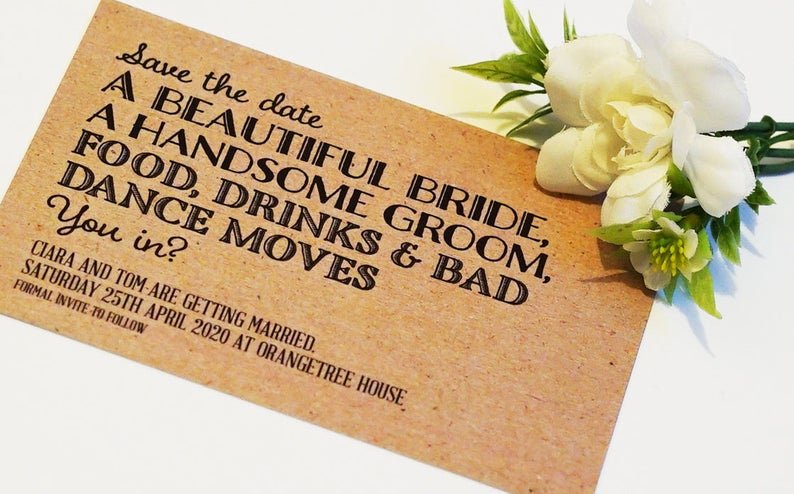 Save the date
A BEAUTIFUL BRIDE,
A HANDSOME GROOM,
FOOD, DRINKS & BAD
DANCE MOVES
You in?
CIARA AND TOM ARE GETTING MARRIED.
SATURDAY 25TH APRIL 2020 AT ORANGETREE HOUSE
FORMAL INVITE TO FOLLOW